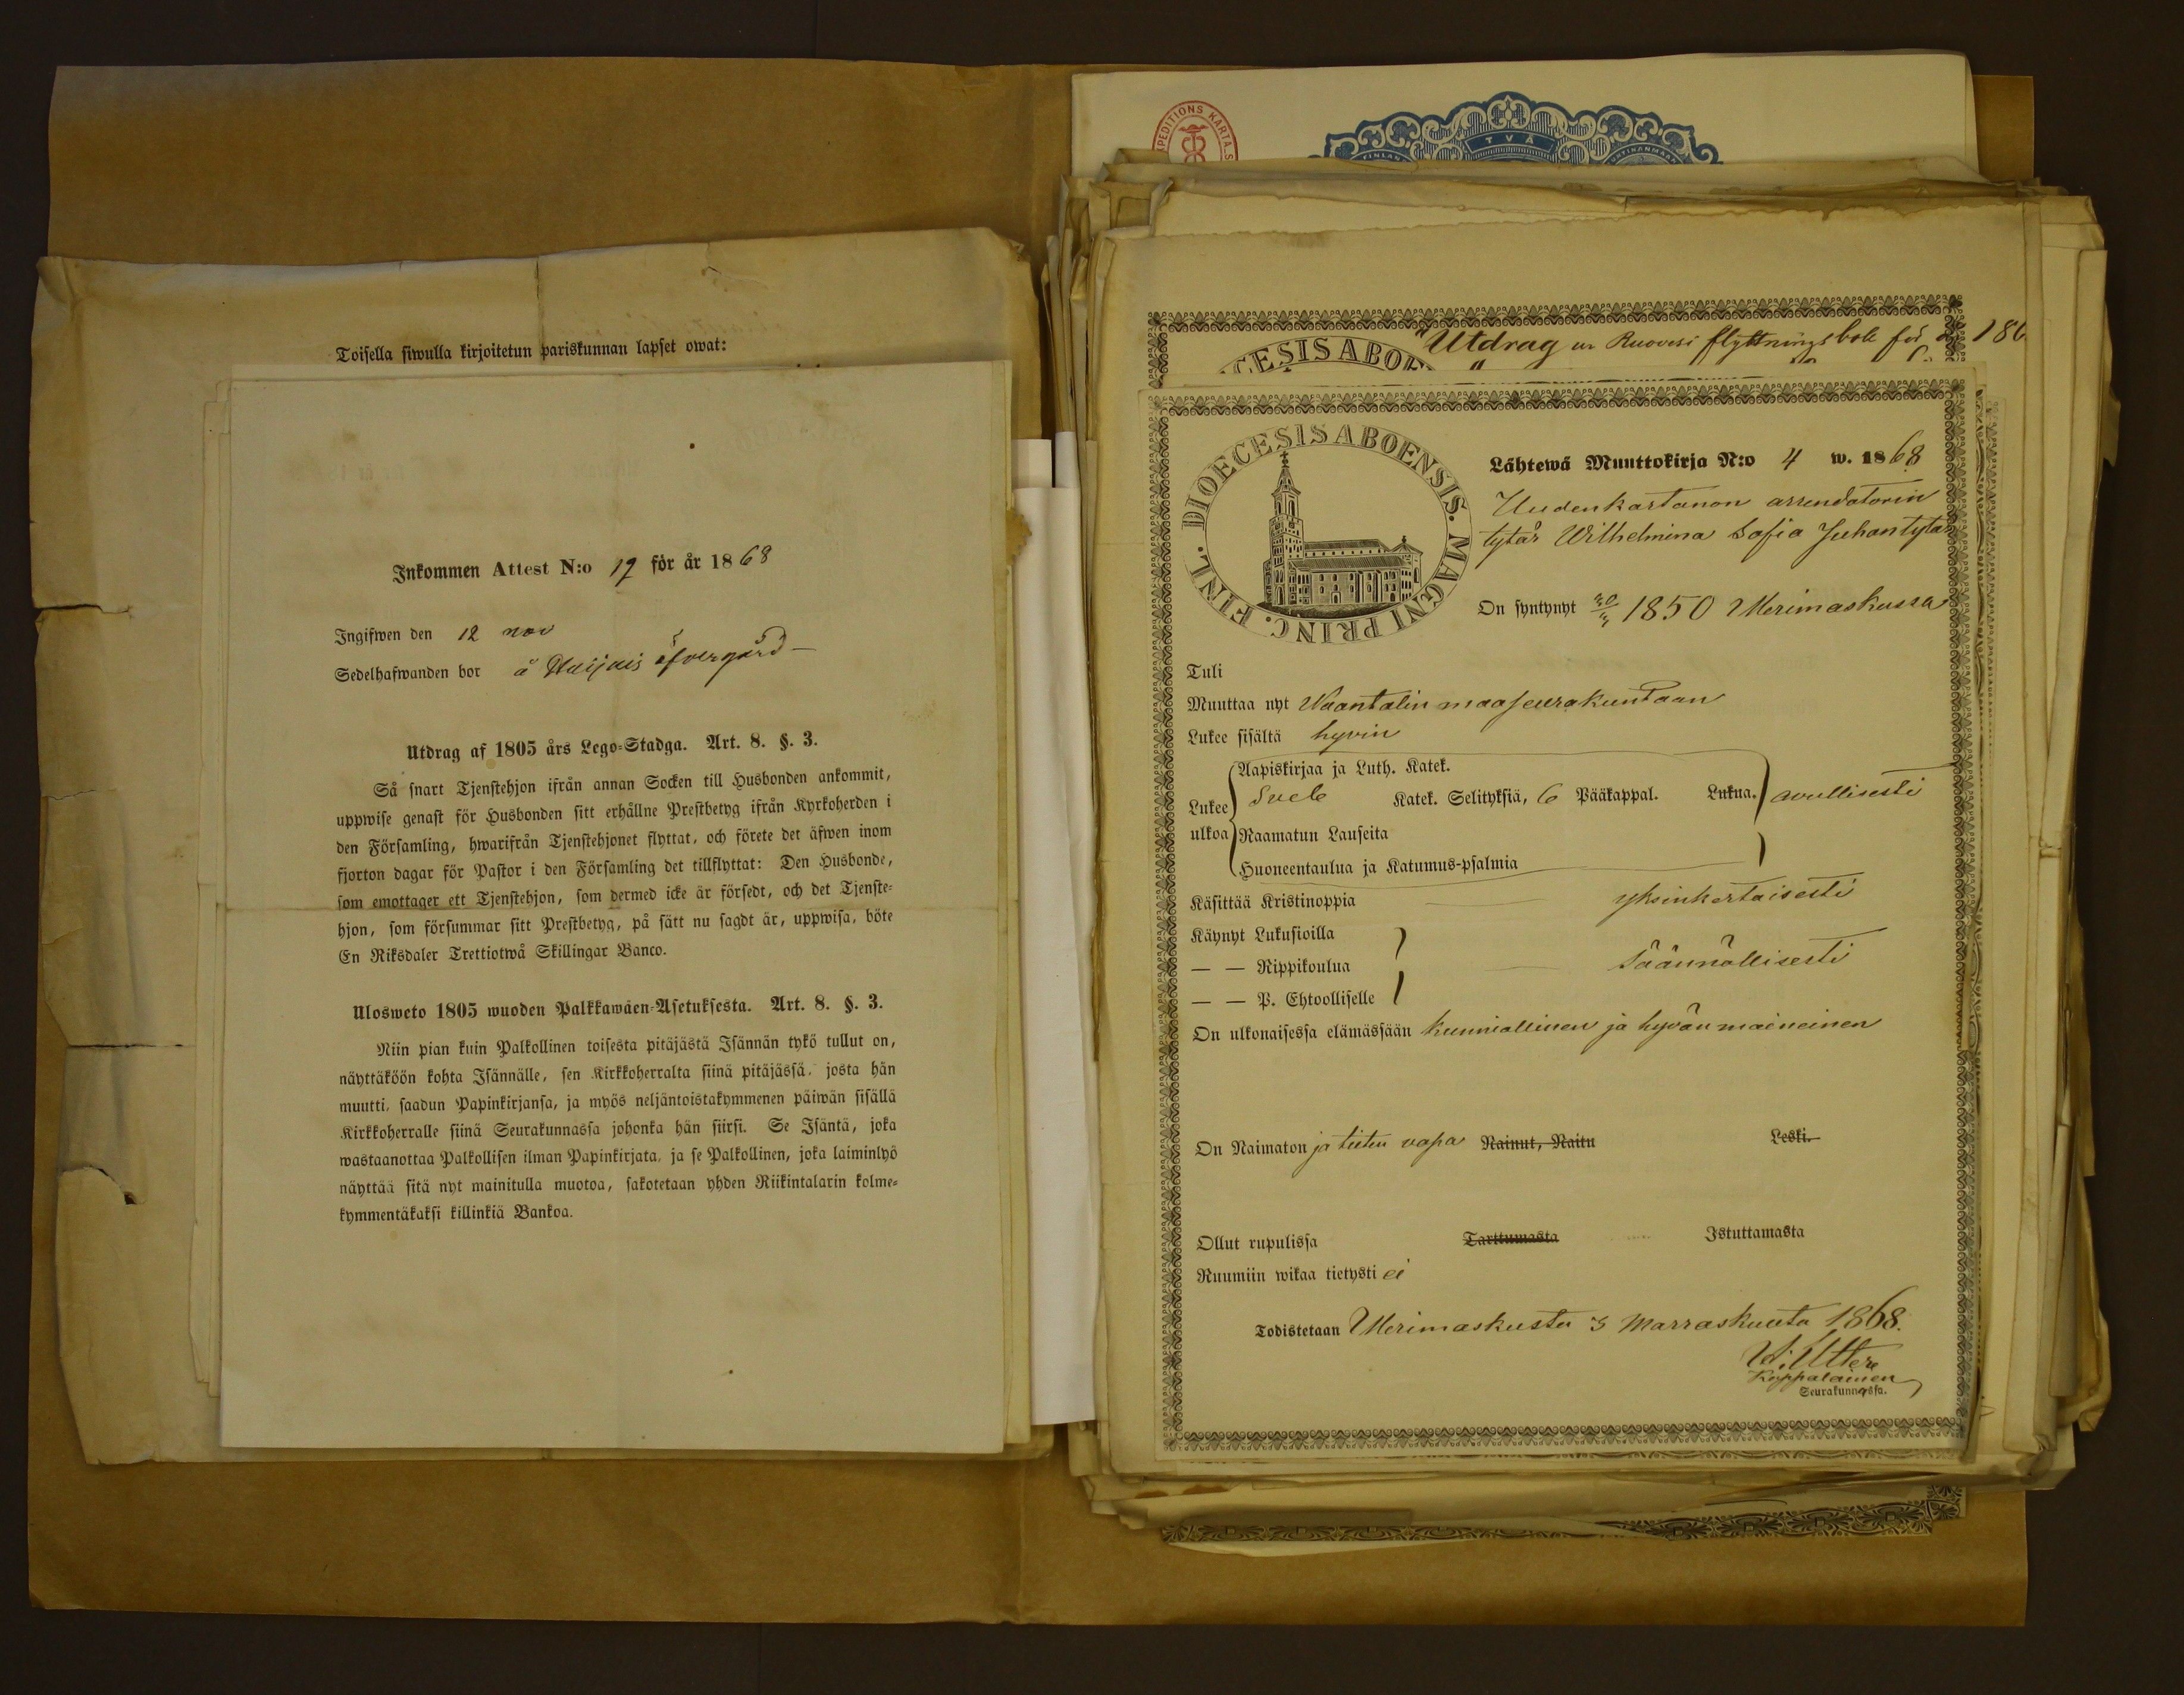 Toisella siwulla kirjoitetun pariskunnan lapset owat:
Inkommen Attest N:o 17 för år 1868
Ingifwen den 12 nov
Sedelhafwanden bor å Haijais öfvergård
Utdrag af 1805 års Lego-Stadga. Art. 8. §. 3.
Så snart Tjenstehjon ifrån annan Socken till Husbonden ankommit,
uppwise genast för Husbonden sitt erhållne Prestbetyg ifrån Kyrkoherden i
den Församling, hwarifrån Tjenstehjonet flyttat, och förete det äfwen inom
fjorton dagar för Pastor i den Församling det tillflyttat: Den Husbonde,
som emottager ett Tjenstehjon, som dermed icke är försedt, och det Tjenste-
hjon, som försummar sitt Prestbetyg, på sätt nu sagdt är, uppwisa, böte
En Riksdaler Trettiotwå Skillingar Banco.
Ulosweto 1805 wuoden Palkkawäen-Asetuksesta. Art. 8. §. 3.
Niin pian kuin Palkollinen toisesta pitäjästä Isännän tykö tullut on,
näyttäköön kohta Isännälle, sen Kirkkoherralta siinä pitäjässä, josta hän
muutti, saadun Papinkirjansa, ja myös neljäntoistakymmenen päiwän sisällä
Kirkkoherralle siinä Seurakunnassa johonka hän siirsi. Se Isäntä, joka
wastaanottaa Palkollisen ilman Papinkirjata, ja se Palkollinen, joka laiminlyö
näyttää sitä nyt mainitulla muotoa, sakotetaan yhden Riikintalarin kolme-
kymmentäkaksi killinkiä Bankoa.
PEDITIONS KARTA.S
TVÅ
FINLAN
Utdrag ur Ruovesi flyttningsbok för år 186
CESIS ABOE
DIOECESIS ABOENSIS. MAGNI PRINC. FINL.
Lähtewä Muuttokirja N:o 4 w. 1868
Uudenkartanon arrendatorin
tytär Wilhelmina Sofia Juhantytär
On syntynyt 1850 Merimaskussa
Tuli
Muuttaa nyt Naantalin maaseurakuntaan
Lukee sisältä hyvin
Aapiskirjaa ja Luth. Katek.
Lukee Sveb Katek. Selityksiä, 6 Pääkappal. Lukua. avullisesti
ulkoa Raamatun Lauseita
Huoneentaulua ja Katumus-psalmia
Käsittää Kristinoppia yksinkertaisesti
Käynyt Lukusioilla
— — Rippikoulua Säännöllisesti
— — P. Ehtoolliselle
On ulkonaisessa elämässään kunniallinen ja hyvän maineinen
On Naimaton ja tieten vapa Nainut, Naitu Leski.
Ollut rupulissa Tarttumasta Istuttamasta
Ruumiin wikaa tietysti ei
Todistetaan Merimaskusta 3 Marraskuuta 1868.
Kappalainen
Seurakunnassa.